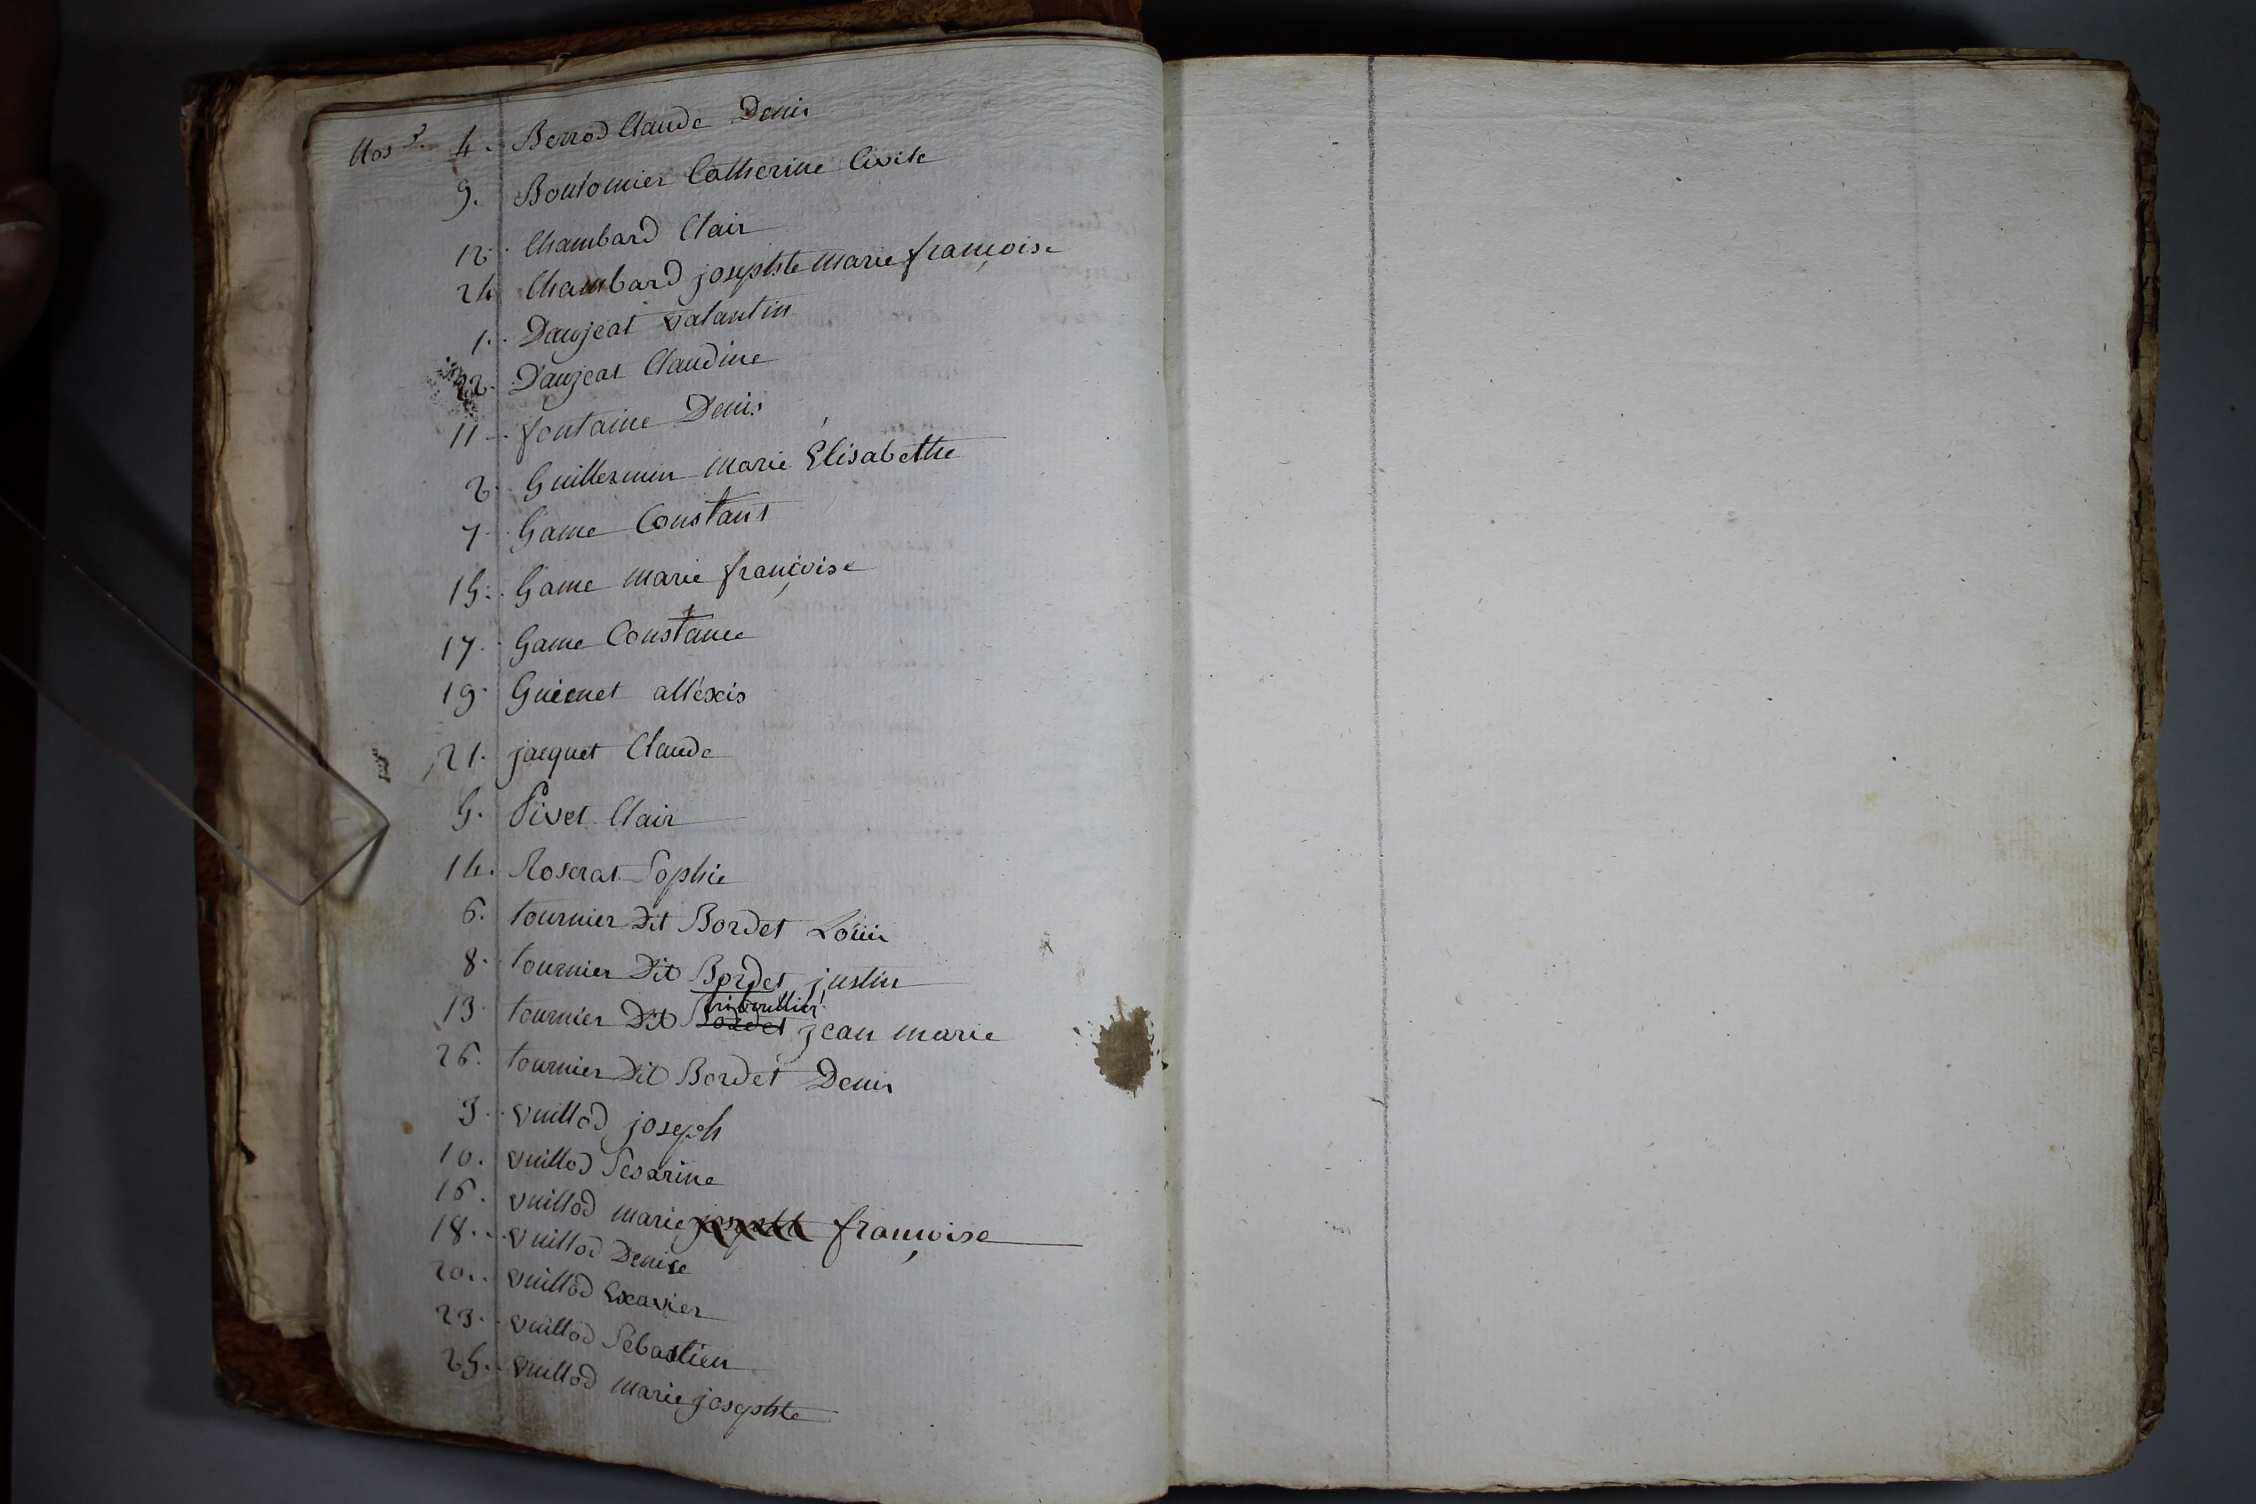 Nos 4. Berrod Claude Denis
9. Boutonnier Catherine Civile
12. Chambard Clair
24 Chambard josephte marie françoise
1. Daujeat valantin
22. Daujeat Claudine
11. fontaine Denis
2. Guillermin marie Élisabethe
7. Game Constant
15. Game marie françoise
17. Game Constance
19. alléxis
21. jacquet Claude
5. Pivet Clair
14. Roserat Sophie
6. tournier Dit Bordet Loüis
8. tournier Dit Bordet justin
13. tournier Dit Bordet jean marie
26. tournier Dit Bordet Denis
3. vuillod joseph
10. vuillod Sesarine
16. vuillod marie françoise
18. vuillod Denise
20. vuillod Exavier
23. vuillod Sébastien
25. vuillod marie josephte